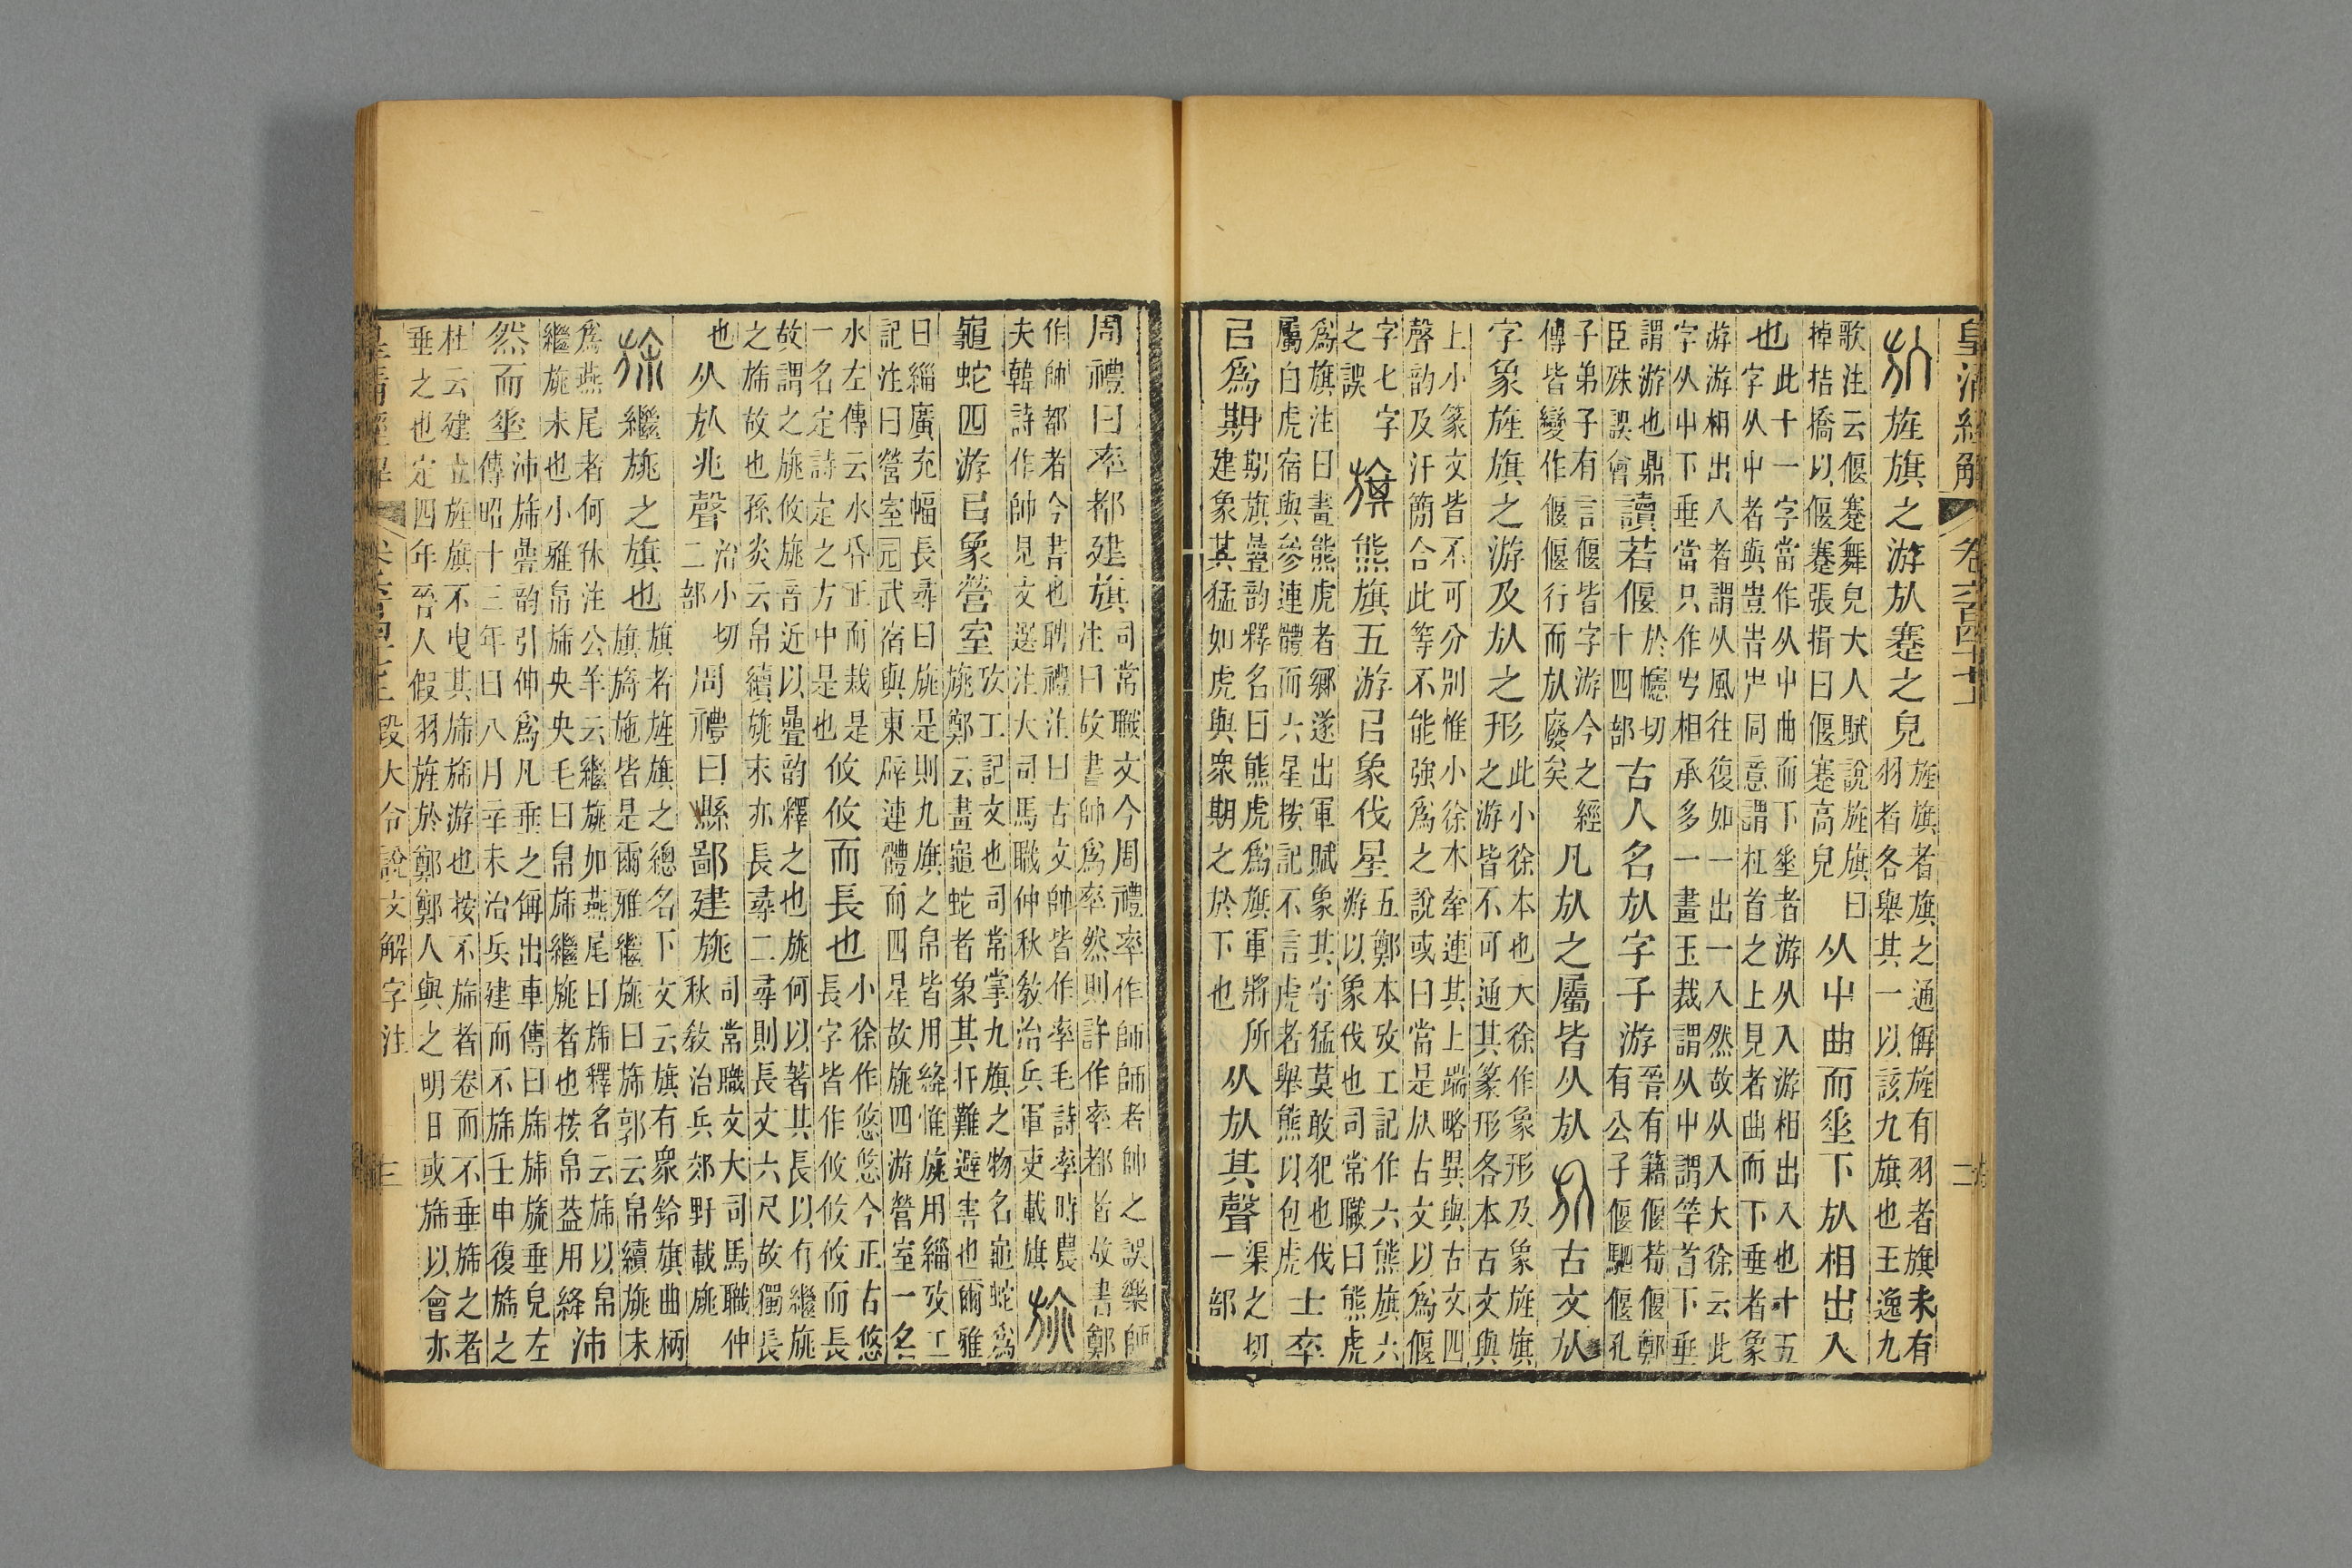 皇清經解 卷六百四十七 二
㫃旌旗之游㫃蹇之皃
旌旗者旗之通偁旌有羽者旗未有
羽者各舉其一以該九旗也王逸九
歌注云偃蹇舞皃大人賦說旌旗曰
掉桔橋以偃蹇張揖曰偃蹇高皃
从屮曲而𡍮下㫃相出入
也
此十一字當作从屮曲而下𡍮者游从入游相出入也十五
字从屮者與豈𡴀屵同意謂杠首之上見者曲而下垂者象
游游相出入者謂从風往復如一出一入然故从入大徐云此
字从屮下垂當只作屮相承多一畫玉裁謂从屮謂竿首下垂
謂游也鼎
臣殊誤會
讀若偃
於幰切
十四部
古人名㫃字子游
晉有籍偃荀偃鄭
有公子偃駟偃孔
子弟子有言偃皆字游今之經
傳皆變作偃偃行而㫃廢矣
凡㫃之屬皆从㫃 㫃古文㫃
字象旌旗之游及㫃之形
此小徐本也大徐作象形及象旌旗
之游皆不可通其篆形各本古文與
上小篆文皆不可分別惟小徐本牽連其上端略異與古文四
聲韵及汗簡合此等不能強爲之說或曰當是㫃古文以爲偃
字七字
之誤
旗熊旗五游㠯象伐星
五鄭本攷工記作六熊旗六
游以象伐也司常職曰熊虎
爲旗注曰畫熊虎者鄉遂出軍賦象其守猛莫敢犯也伐
屬白虎宿與參連體而六星按記不言虎者舉熊以包虎
士卒
㠯爲期
期旗曡韵釋名曰熊虎爲旗軍將所
建象其猛如虎與衆期之於下也
从㫃其聲
渠之切
一部
周禮曰率都建旗
司常職文今周禮率作師師者帥之誤樂師
注曰故書帥爲率然則許作率都者故書鄭
作帥都者今書也聘禮注曰古文帥皆作率毛詩率時農
夫韓詩作帥見文選注大司馬職仲秋敎治兵軍吏載旗
旐
龜蛇四游㠯象營室
攷工記文也司常掌九旗之物名龜蛇爲
旐鄭云畫龜蛇者象其扞難避害也爾雅
曰緇廣充幅長尋曰旐是則九旗之帛皆用絳惟旐用緇攷工
記注曰營室元武宿與東壁連體而四星故旐四游營室一名
水左傳云水昏正而栽是
一名定詩定之方中是也
攸攸而長也
小徐作悠悠今正古悠
長字皆作攸攸攸而長
故謂之旐攸旐音近以曡韵釋之也旐何以著其長以有繼旐
之旆故也孫炎云帛續旐末亦長尋二尋則長丈六尺故獨長
也
从㫃兆聲
治小切
二部
周禮曰縣鄙建旐
司常職文大司馬職仲
秋敎治兵郊野載旐
旆繼旐之旗也
旗者旌旗之總名下文云旗有衆鈴旗曲柄
旗旖施皆是爾雅繼旐曰旆郭云帛續旐末
爲燕尾者何休注公羊云繼旐如燕尾曰旆釋名云旆以帛
繼旐末也小雅帛旆央央毛曰帛旆繼旐者也按帛葢用絳
沛
然而𡍮
沛旆曡韵引伸爲凡垂之偁出車傳曰旆旆旒垂皃左
傳昭十三年曰八月辛未治兵建而不旆壬申復旆之
杜云建立旌旗不曳其旆旆游也按不旆者卷而不垂旆之者
垂之也定四年晉人假羽旌於鄭鄭人與之明日或旆以會亦
皇清經解 段大令說文解字注 三